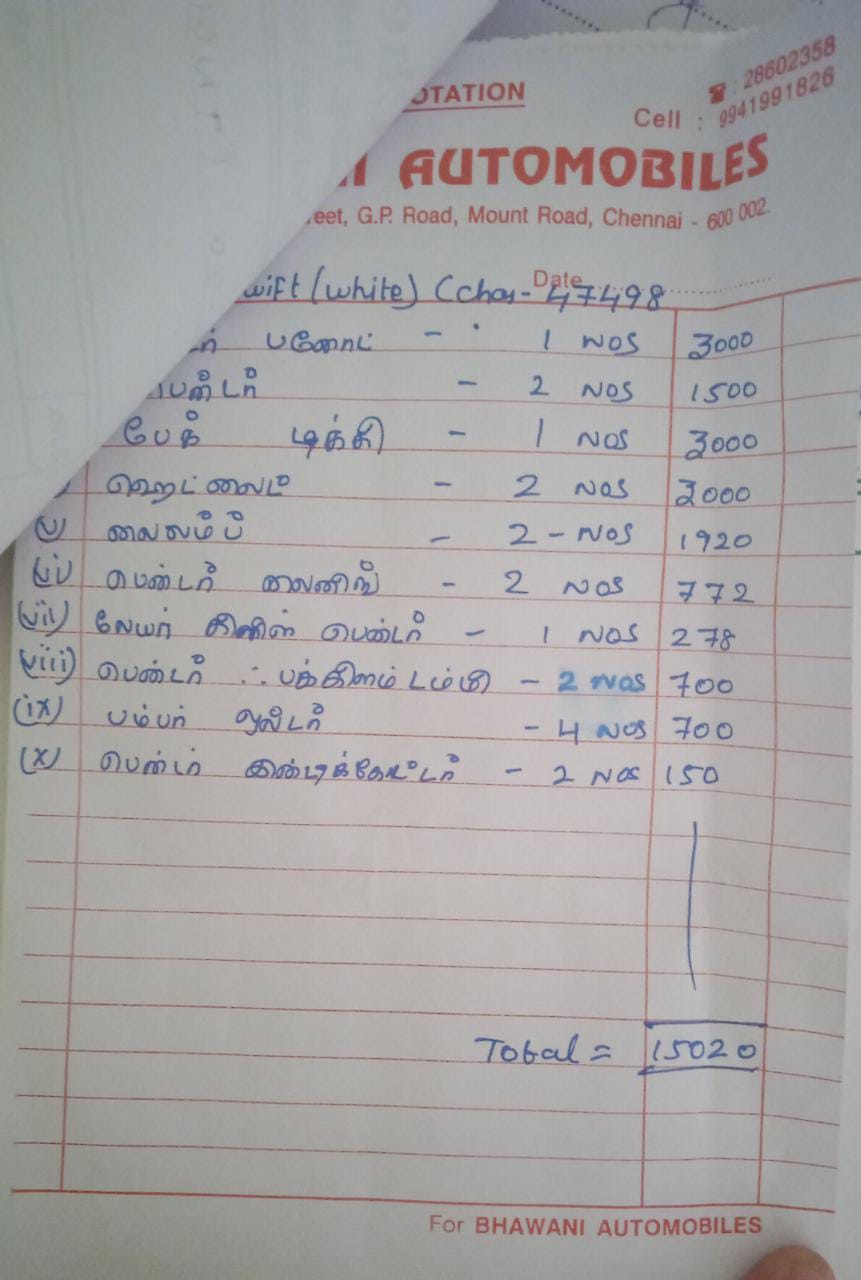 OTATION
☎ : 28602358
Cell : 9941991826
AUTOMOBILES
reet, G.P. Road, Mount Road, Chennai - 600 002.
Date
wift (white) (chas- 47498
- 1 NOS 3000
- 2 NOS 1500
பேக் டிக்கி - 1 NOS 3000
ஹெட் லைட் - 2 NOS 3000
(v) - 2 - NOS 1920
பெண்டர் லைனிங் - 2 NOS 772
(vii) பெண்டர் - 1 NOS 278
(viii) பெண்டர் - 2 NOS 700
(ix) பம்பர் - 4 NOS 700
(x) பெண்டர் இண்டிக்கேட்டர் - 2 NOS 150
Total = 15020
For BHAWANI AUTOMOBILES